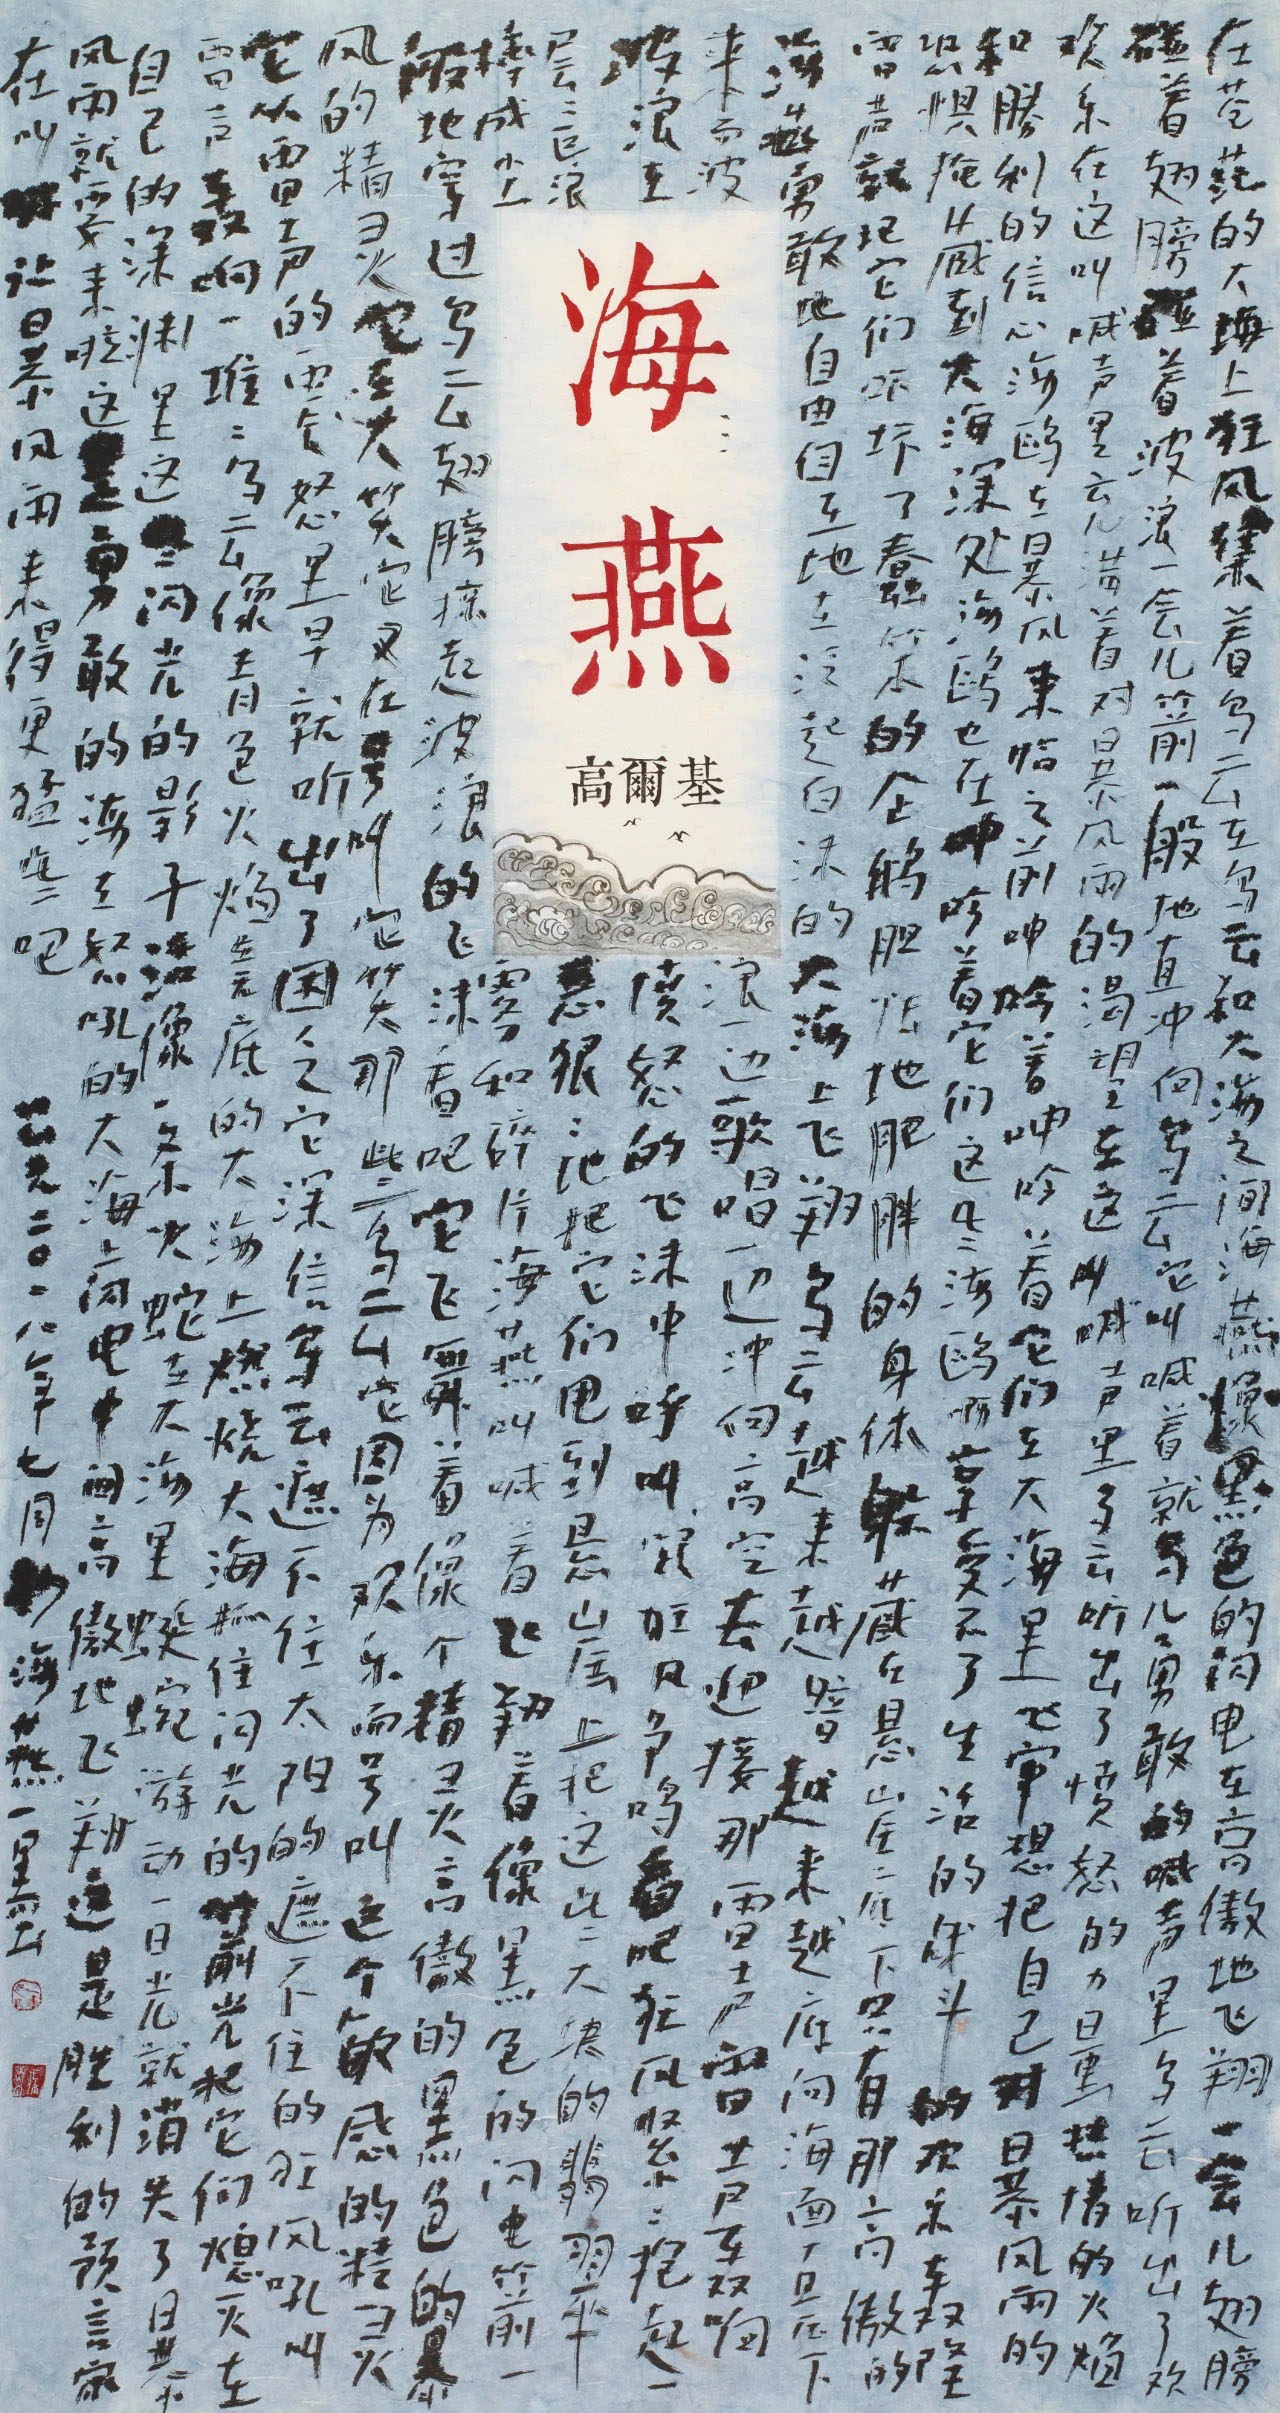 海燕
高爾基
在苍茫的大海上狂风集着乌云在乌云和大海之间海燕像黑色的闪电在高傲地飞翔一会儿翅膀
碰着翅膀碰着波浪一会儿箭一般地直冲向乌云它叫喊着就鸟儿勇敢的喊声里乌云听出了欢
欢乐在这叫喊声里充满着对暴风雨的渴望在这叫喊声里乌云听出了愤怒的力量热情的火焰
和胜利的信心海鸥在暴风来临之前呻吟着呻吟着它们在大海里飞窜想把自己对暴风雨的
恐惧掩藏到大海深处海鸥也在呻吟着它们这些海鸥啊享受不了生活的战斗的欢乐轰隆
雷声就把它们吓坏了蠢笨的企鹅胆怯地肥胖的身体躲藏在悬崖底下只有那高傲的
海燕勇敢地自由自在地在泛起白沫的大海上飞翔乌云越来越暗越来越底向海面直压下
来而波浪一边歌唱一边冲向高空去迎接那雷声雷声轰响
波浪在愤怒的飞沫中呼叫跟狂风争鸣看吧狂风紧紧抱起一
层层巨浪恶狠狠地把它们甩到悬崖上把这些大块的翡翠
摔成尘雾和碎片海燕叫喊着飞翔着像黑色的闪电箭一
般地穿过乌云翅膀掠起波浪的飞沫看吧它飞舞着像个精灵高傲的黑色的暴
风的精灵它在大笑它又在号叫它笑那些乌云它因为欢乐而号叫这个敏感的精灵
它从雷声的震怒里早就听出了困乏它深信乌云遮不住太阳的遮不住的狂风吼叫
雷声轰响一堆堆乌云像青色火焰在无底的大海上燃烧大海抓住闪光的箭光把它们熄灭在
自己的深渊里这些闪光的影子活像一条火蛇在大海里蜒蜿游动一晃就消失了暴
风雨就要来啦这是勇敢的海在怒吼的大海上闪电中间高傲地飞翔这是胜利的预言家
在叫喊让暴风雨来得更猛些吧 公元二〇一八年七月抄海燕一